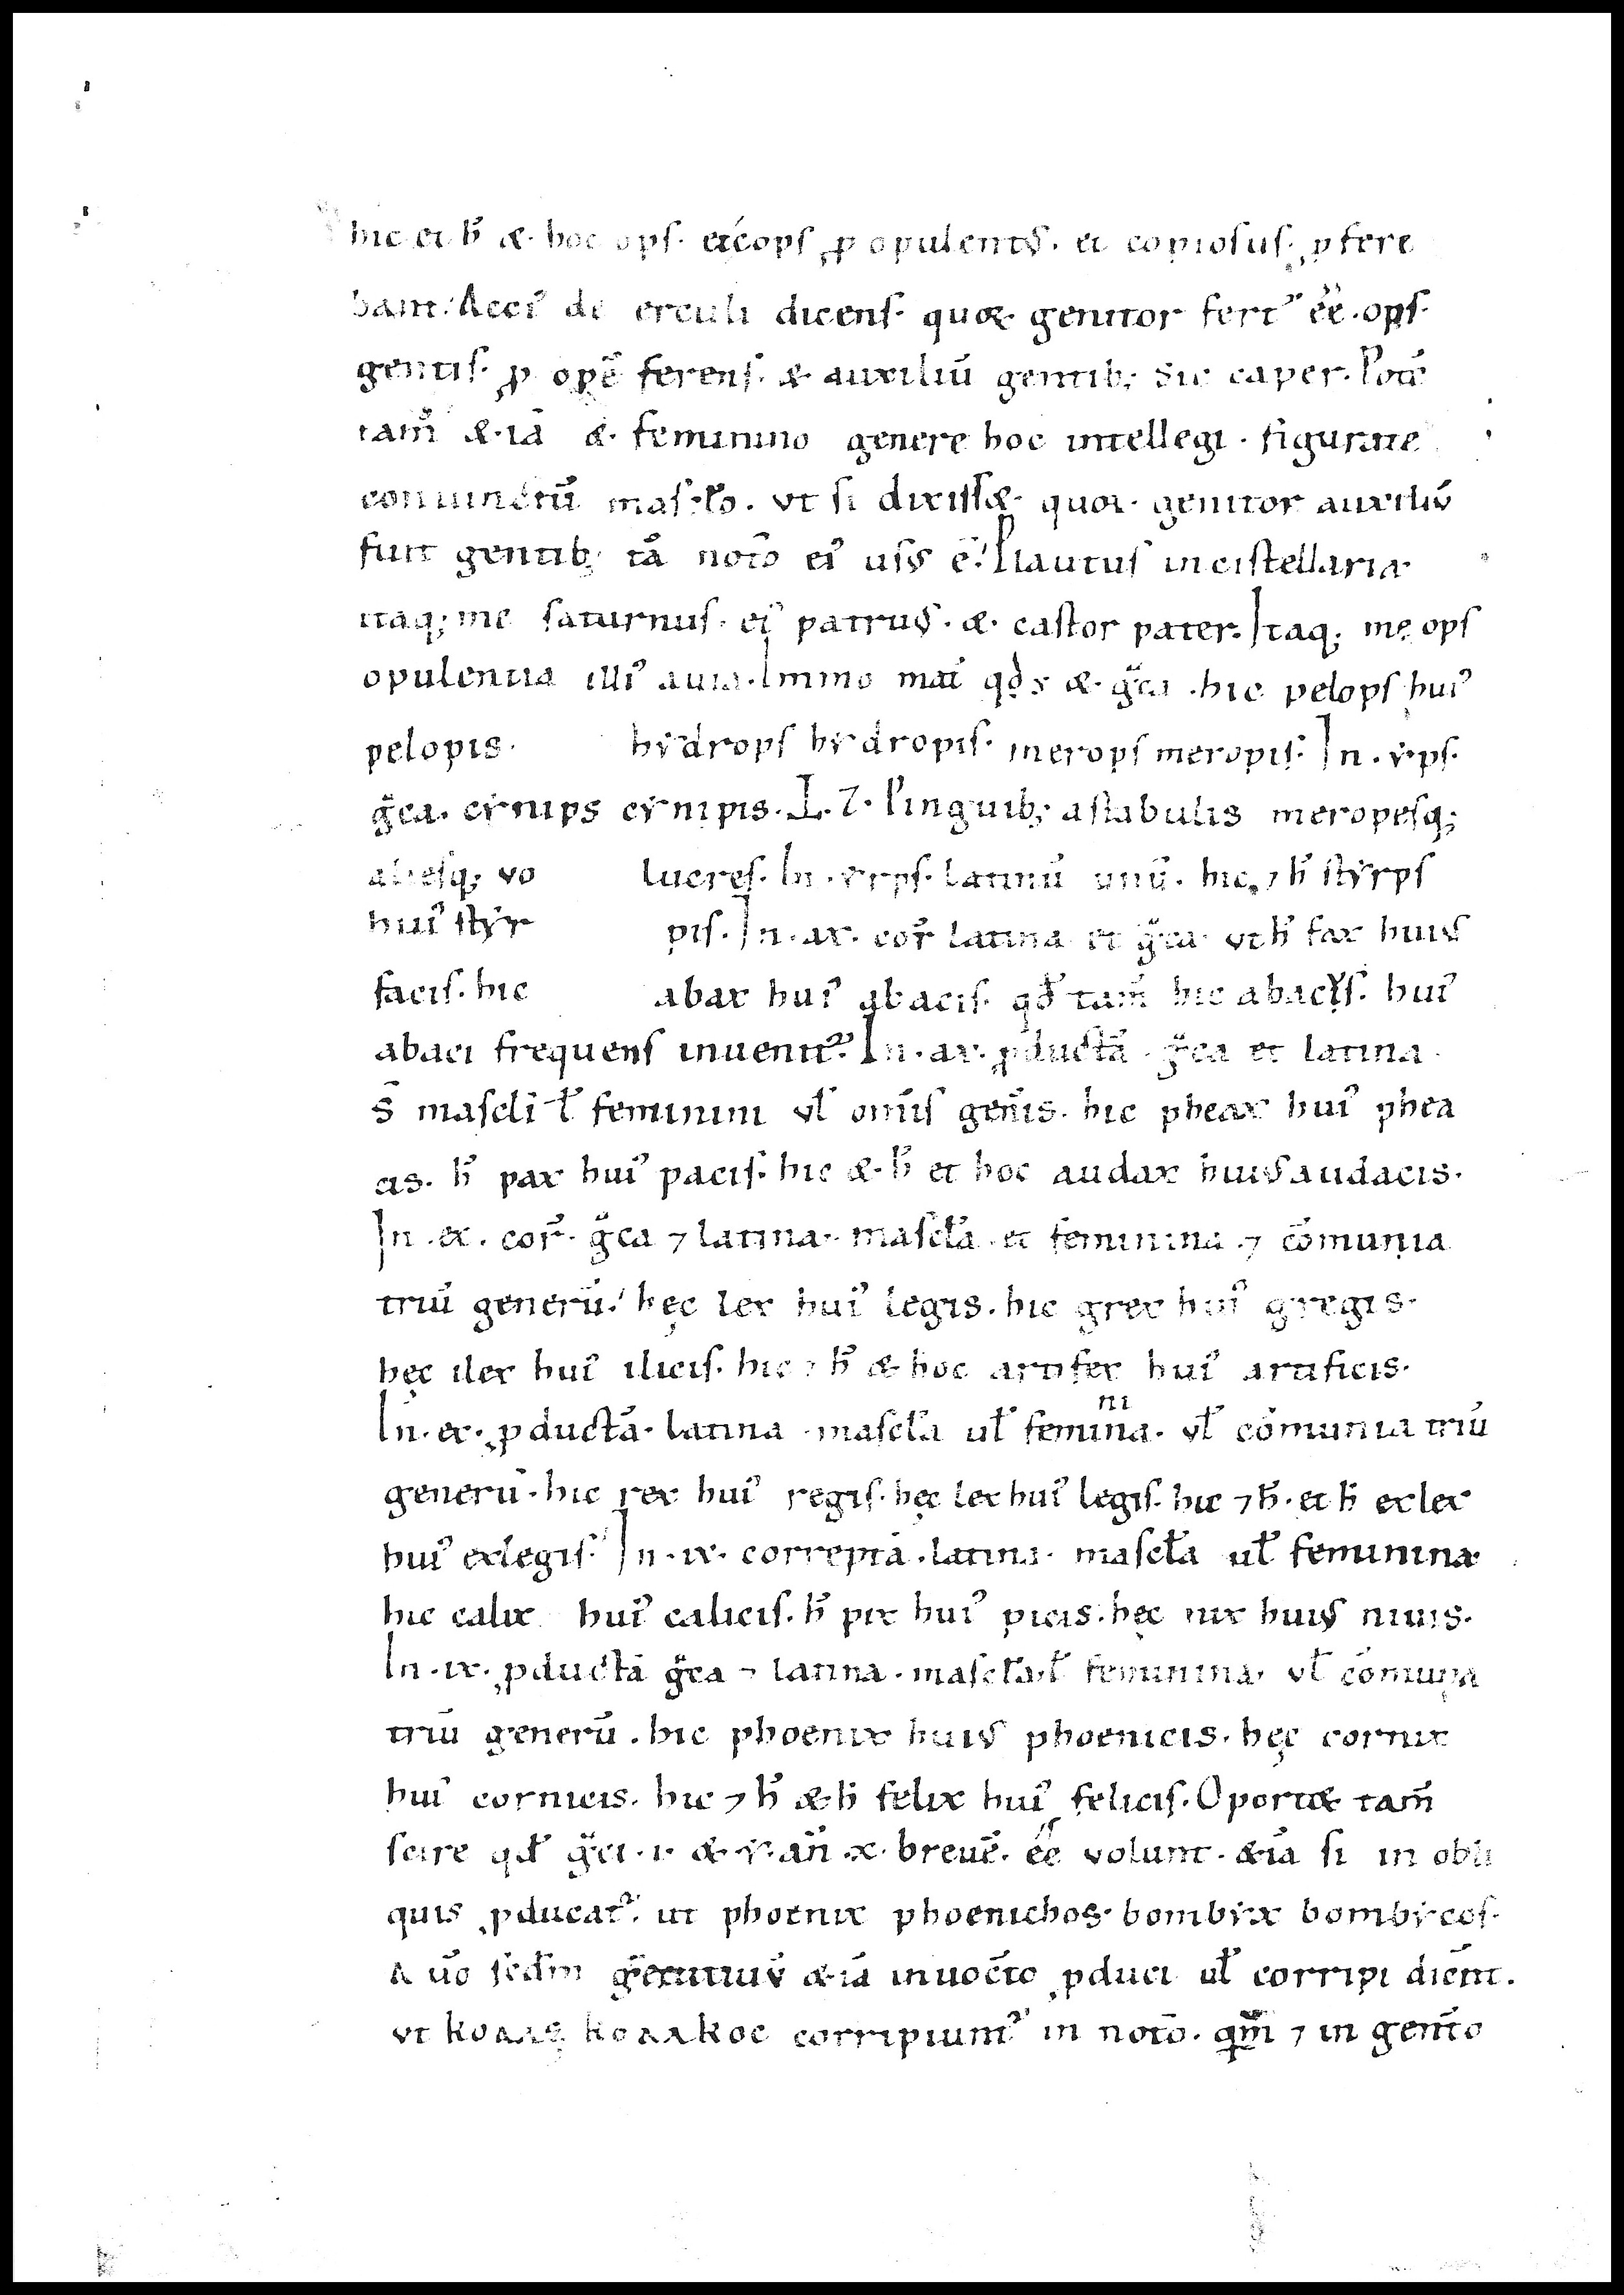 hic et h̄ & hoc ops. et cops ꝓ opulentus. et copiosus. ꝓfere
bant. Acci᾽ de erculi dicens. quox genitor fert᾽ ee᷑. ops.
gentis. ꝓ opē ferens. & auxiliū gentib; sic caper. Potē
tam̄ & iā & feminino genere hoc intellegi. figurate
coniunctū mascłō. vt si dixiss&. quox. genitor auxiliū
fuit gentib; tā notō ei᾽ usus ē. Plautus in cistellaria
itaq; me saturnus. ei᾽ patruus. & castor pater. Itaq; me ops
opulentia illi᾽ auia. Immo mat̄ qd̄ & g̃ca. hic pelops hui᾽
pelopis. hydrops hydropis. merops meropis. In .yps.
g̃ca. cynips cynipis. L. 7. Pinguib; astabulis meropesq;
aliesq; vo lucres. In .yrps. latinū unū. hic ⁊ h̄ styrps
hui᾽ styr pis. In .ax. cor̄ latina et g̃ca vt h̄ fax huius
facis. hic abax hui᾽ abacis. qd̄ tam̄ hic abacus. hui᾽
abaci frequens inuenit᾽. In .ax. ꝓductā. g̃ca et latina.
s̄ mascli ł feminini vł om̄is gen̄is. hic pheax hui᾽ phea
cis. h̄ pax hui᾽ pacis. hic & h̄ et hoc audax huius audacis.
In .ex. cor̄. g̃ca ⁊ latina. mascłā et feminina ⁊ cōmunia
triū generū. hęc lex hui᾽ legis. hic grex hui᾽ gregis.
hęc ilex hui᾽ ilicis. hic ⁊ h̄ & hoc artifex hui᾽ artificis.
In .ex. ꝓductā. latina. mascłā uł femin ni a. vł cōmunia triū
generū. hic rex hui᾽ regis. hęc lex hui᾽ legis. hic ⁊ h̄. et h̄ exlex
hui᾽ exlegis. In .ix. correptā. latina. mascłā uł feminina
hic calix hui᾽ calicis. h̄ pix hui᾽ picis. hęc nix huius niuis.
In .ix. ꝓductā g̃ca ⁊ latina. mascłā. ł feminina. vł cōmunia
triū generū. hic phoenix huius phoenicis. hęc cornix
hui᾽ cornicis. hic ⁊ h̄ & h̄ felix hui᾽ felicis. Oport& tam̄
scire qd̄ g̃ci .i. & .y. an̄ .x. breuē. ee᷑ volunt. & iā si in obli
quis ꝓducat᾽. ut phoenix phoenichos. bombyx bombycos.
A ūo sc̄dm g̃etiuū & iā in uoc̄to ꝓduci uł corripi dicn̄t.
vt κολλξ κολλκος corripiunt᾽ in notō. qm̄ ⁊ in gen̄to